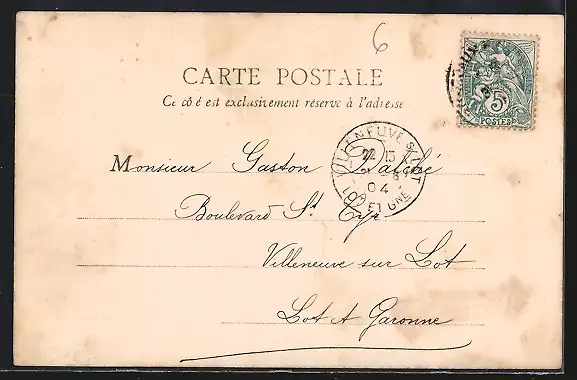 6
CARTE POSTALE
Ce côté est exclusivement réservé à l'adresse
5
POSTES
VILLENEUVE S/ LOT
22 15
04
LOT ET GNE
Monsieur Gaston Dalché
Boulevard St Cyr
Villeneuve sur Lot
Lot & Garonne